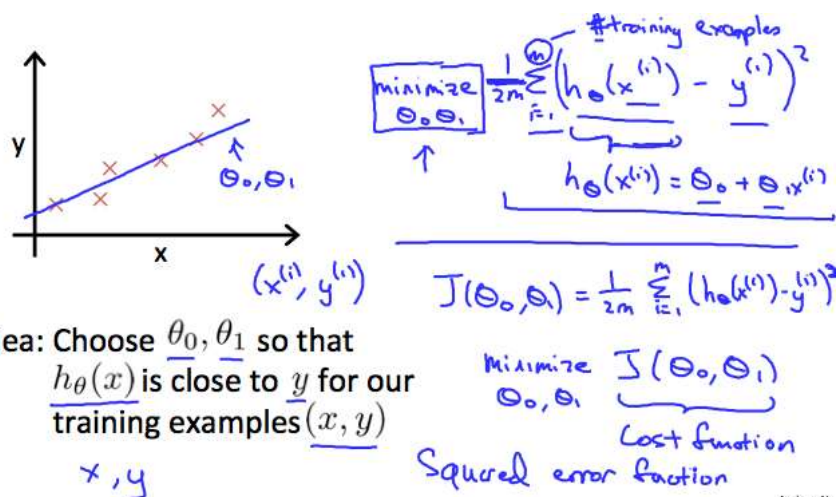 y
x
θ₀,θ₁
(x⁽ⁱ⁾, y⁽ⁱ⁾)
ea: Choose θ₀, θ₁ so that
h_θ(x) is close to y for our
training examples (x, y)
x, y
#training examples
minimize
θ₀ θ₁
1/2m ∑_{i=1}^{m} (h_θ(x⁽ⁱ⁾) - y⁽ⁱ⁾)²
h_θ(x⁽ⁱ⁾) = θ₀ + θ₁x⁽ⁱ⁾
J(θ₀,θ₁) = 1/2m ∑_{i=1}^{m} (h_θ(x⁽ⁱ⁾)-y⁽ⁱ⁾)²
minimize J(θ₀,θ₁)
θ₀,θ₁
Cost function
Squared error faction